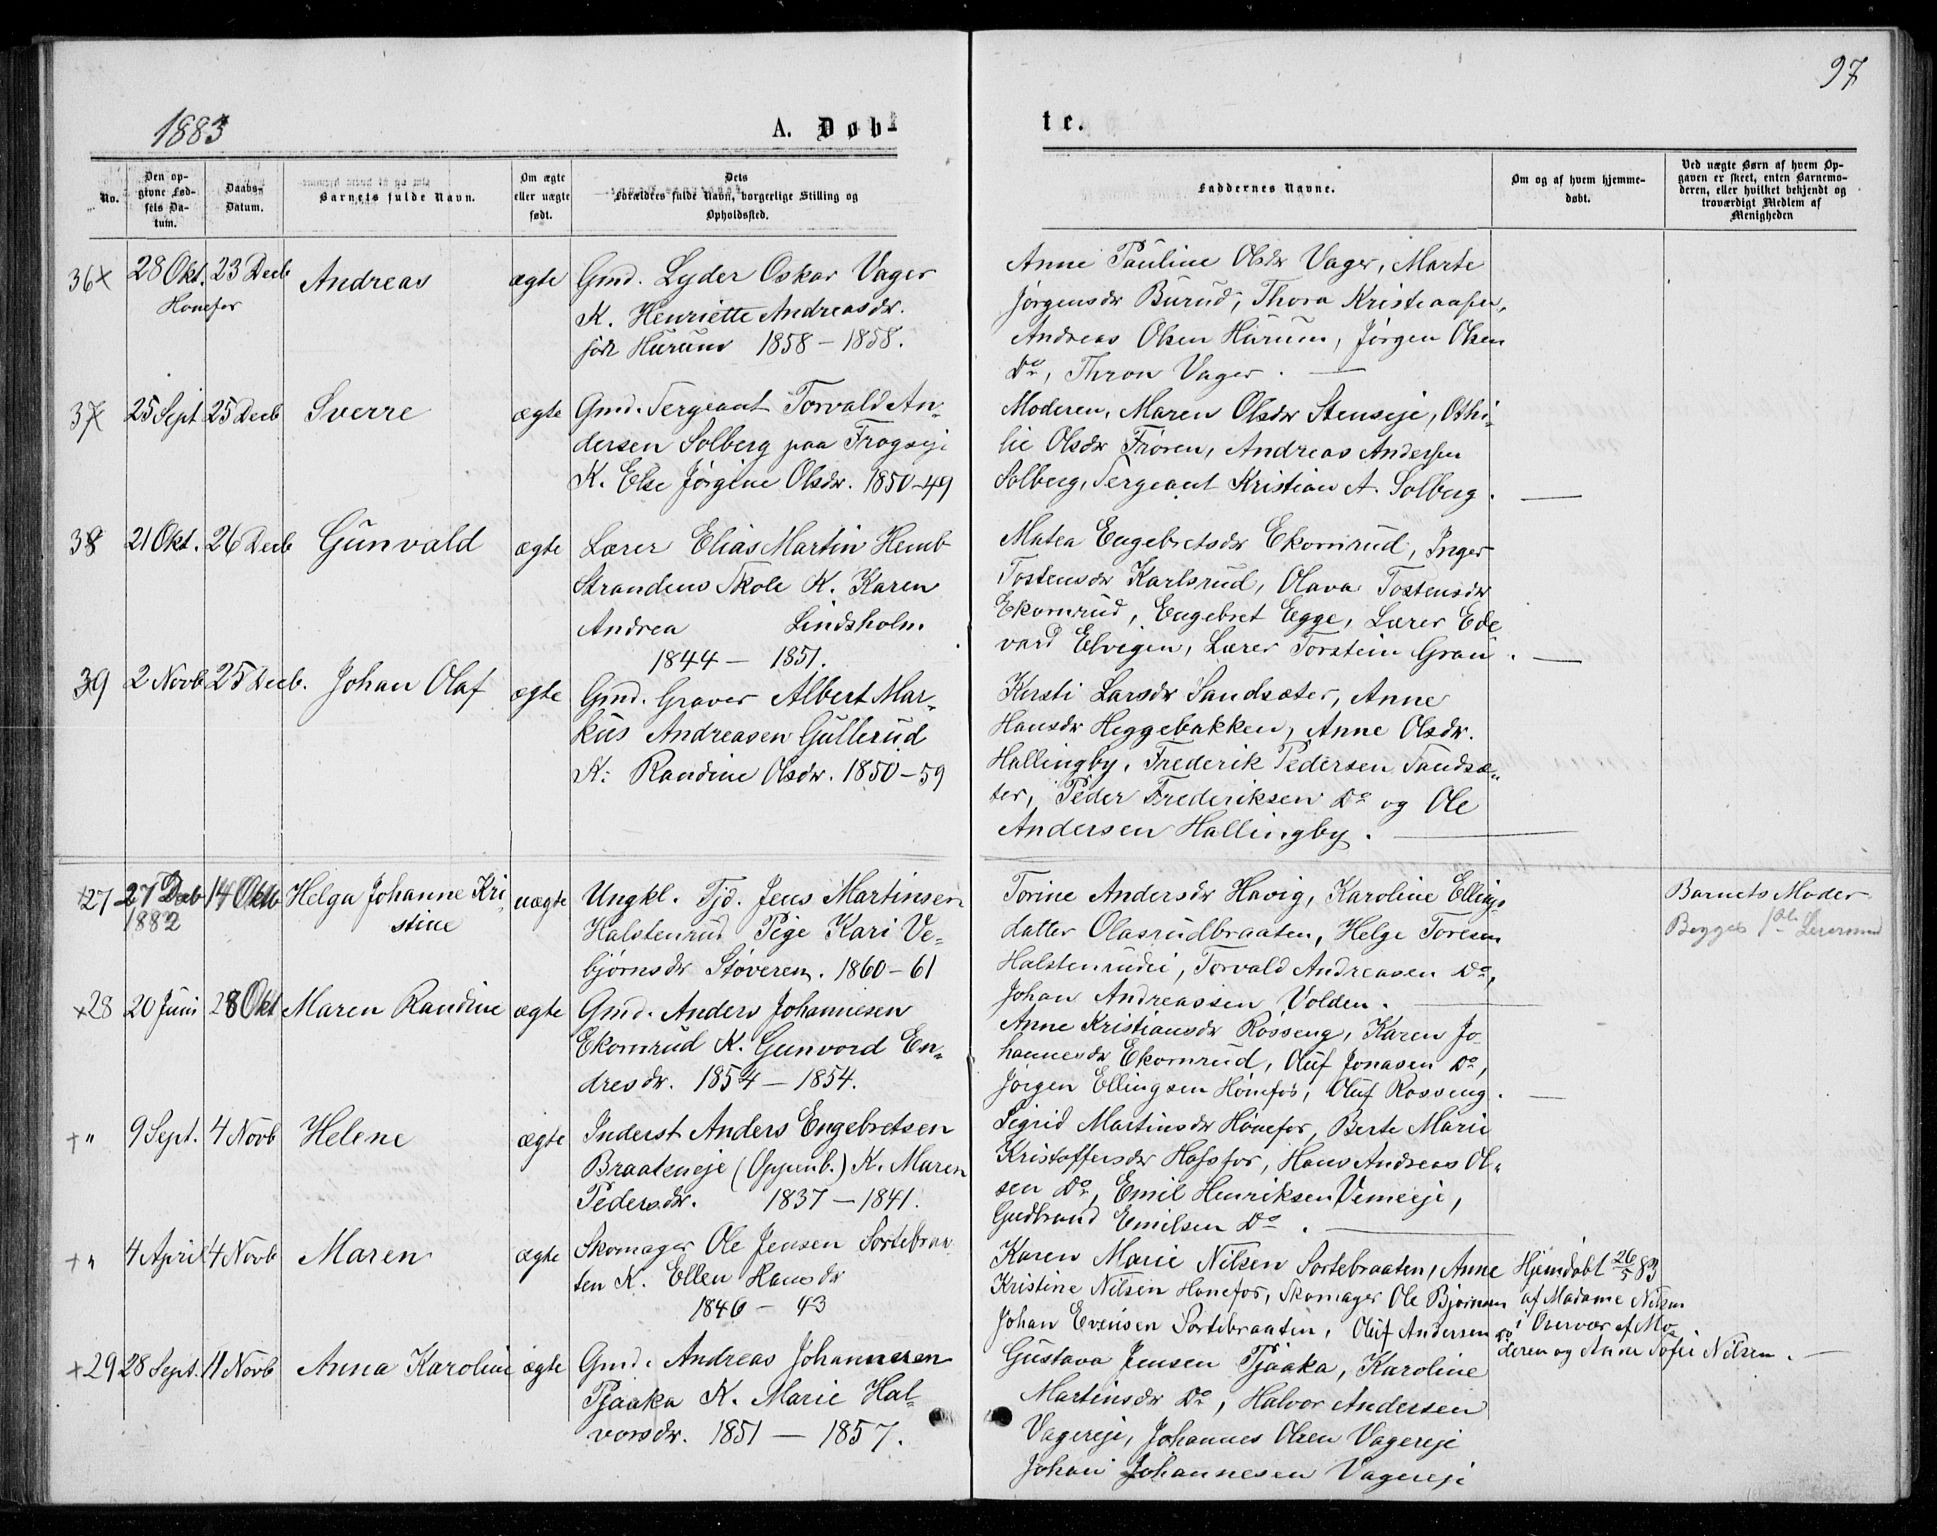 97
1883
A. Døb-
te.
No.
Den op-
givne Fød-
sels Da-
tum.
Daabs-
Datum.
Barnets fulde Navn.
Om ægte
eller uægte
født.
Dets
Forældres fulde Navn, borgerlige Stilling og
Opholdssted.
Faddernes Navne.
Om og af hvem hjemme-
døbt.
Ved uægte Børn af hvem Op-
gaven er skeet, enten Barnemo-
deren, eller hvilket bekjendt og
troværdigt Medlem af
Menigheden
36 x 28 Okt. 23 Decb Andreas ægte
Honefos
Gmd. Lyder Oskar Vager
K. Henriette Andreasdr.
født Hurum 1858 - 1858.
Anne Pauline Olsdr Vager, Marte
Jørgensdr Burud, Thora
Andreas Olsen Hurum, Jørgen Olsen
Do, Thron Vager.
37 25 Sept 25 Decb Sverre ægte
Gmd. Sergeant Torvald An-
dersen Solberg paa Frogeje
K. Else Jørgine Olsdr. 1850-49
Moderen, Maren Olsdr Stenseje, Othi-
lie Olsdr Frøren, Andreas Andersen
Solberg, Sergeant Kristian A. Solberg.
38 21 Okt. 26 Decb Gunvald ægte
Lærer Elias Martin Hemb
Strandens Skole K. Karen
Andrea Lindsholm
1844 - 1851.
Matea Engebretsdr Ekornrud, Inger
Tostensdr Karlsrud, Olava Tostensdr
Ekornrud, Engebret Egge, Lærer Ed-
vard Elvigen, Lærer Torstein Gran.
39 2 Novb 25 Decb. Johan Olaf ægte
Gmd. Graver Albert Mar-
kus Andreasen Gullerud
K: Randine Olsdr. 1850-59
Kirsti Larsdr Sandsæter, Anne
Hansdr Heggebakken, Anne Olsdr.
Hallingby, Frederik Pedersen Sandsæ-
ter, Peder Frederiksen Do og Ole
Andersen Hallingby.
+27 27 Decb 14 Oktb Helga Johanne Kri- uægte
1882 stine
Ungkl. Tjd. Jens Martinsen
Halstenrud Pige Kari Ve-
bjørnsdr Støveren. 1860-61
Torine Andersdr Havig, Karoline Ellings
datter Olasrudbraaten, Helge Toresen
Halstenrudei, Torvald Andreasen Do,
Johan Andreassen Volden.
Barnets Moder
Begges
x28 20 Juni 28 Okt Maren Randine ægte
Gmd. Anders Johannesen
Ekornrud K. Gunvord En-
dresdr. 1854 - 1854.
Anne Kristiansdr Rosseng, Karen Jo-
hannesdr Ekornrud, Oluf Jonasen Do,
Jørgen Ellingsen Hønefos, Oluf Rosseng.
+ " 9 Sept. 4 Novb Helene ægte
Inderst Anders Engebretsen
Braateneje (Oppenb.) K. Maren
Pedersdr. 1837 - 1841.
Sigrid Martinsdr Hønefos, Berte Marie
Kristoffersdr Hofsfos, Hans Andreas Ol-
sen Do, Emil Henriksen Vemeeje,
Gudbrand Emilsen Do.
+ " 4 April 4 Novb Maren ægte
Skomager Ole Jensen Sortebraa-
ten K. Ellen Hansdr
1846 - 43
Karen Marie Nilsen Sortebraaten, Anne
Kristine Nilsen Honefos, Skomager Ole Bjørnsen
Johan Evensen Sortebraaten, Oluf Andersen Do
Hjemdøbt 26/5 83
af Madame Nilsen
i Overvær af Mo-
deren og Anne Sofie Nilsen.
+29 28 Sept. 11 Novb Anna Karoline ægte
Gmd. Andreas Johannesen
Tjaaka K. Marie Hal-
vorsdr. 1851 - 1857.
Gustava Jensen Tjaaka, Karoline
Martinsdr Do, Halvor Andersen
Vagereje, Johannes Olsen Vagereje
Johan Johannesen Vagereje